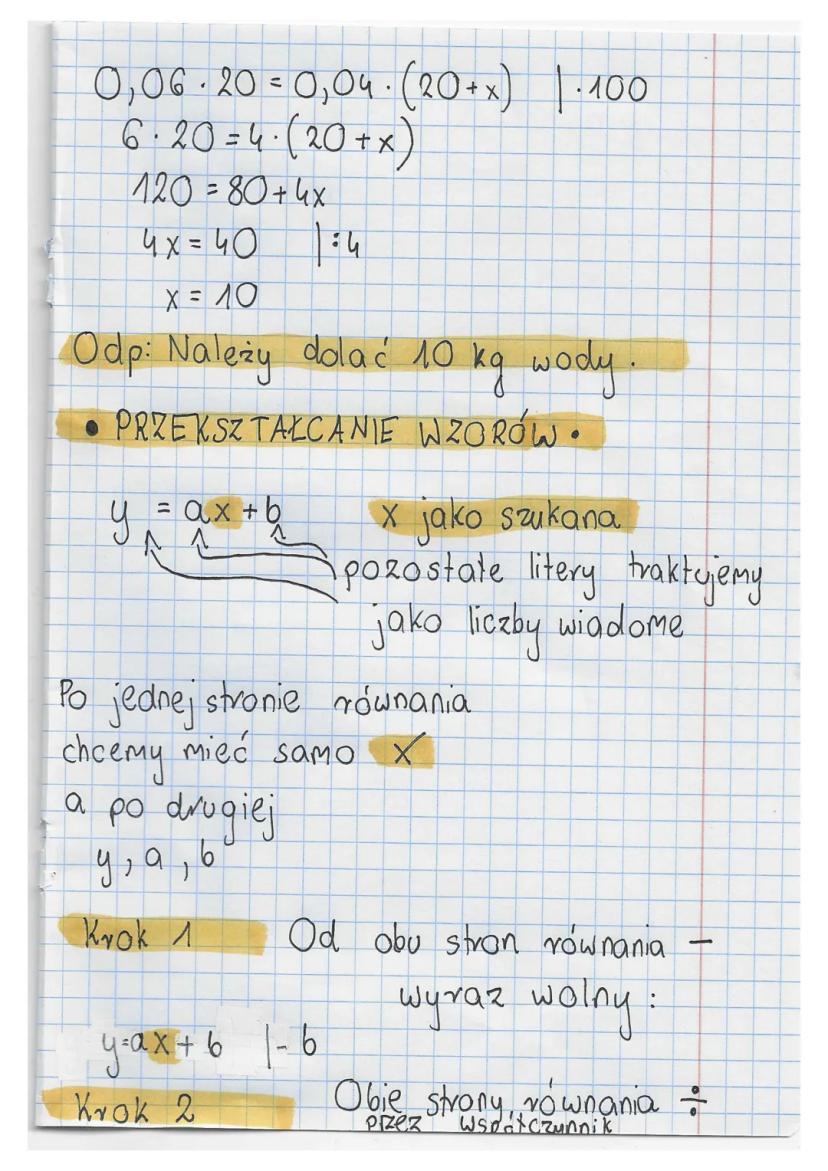 0,06 · 20 = 0,04 · (20+x) | · 100
6 · 20 = 4 · (20+x)
120 = 80 + 4x
4x = 40 | : 4
x = 10
Odp: Należy dolać 10 kg wody.
• PRZEKSZTAŁCANIE WZORÓW •
y = ax + b x jako szukana
pozostałe litery traktujemy
jako liczby wiadome
Po jednej stronie równania
chcemy mieć samo x
a po drugiej
y, a, b
Krok 1 Od obu stron równania –
wyraz wolny:
y=ax+b |- b
Krok 2 Obie strony równania ÷
przez współczynnik